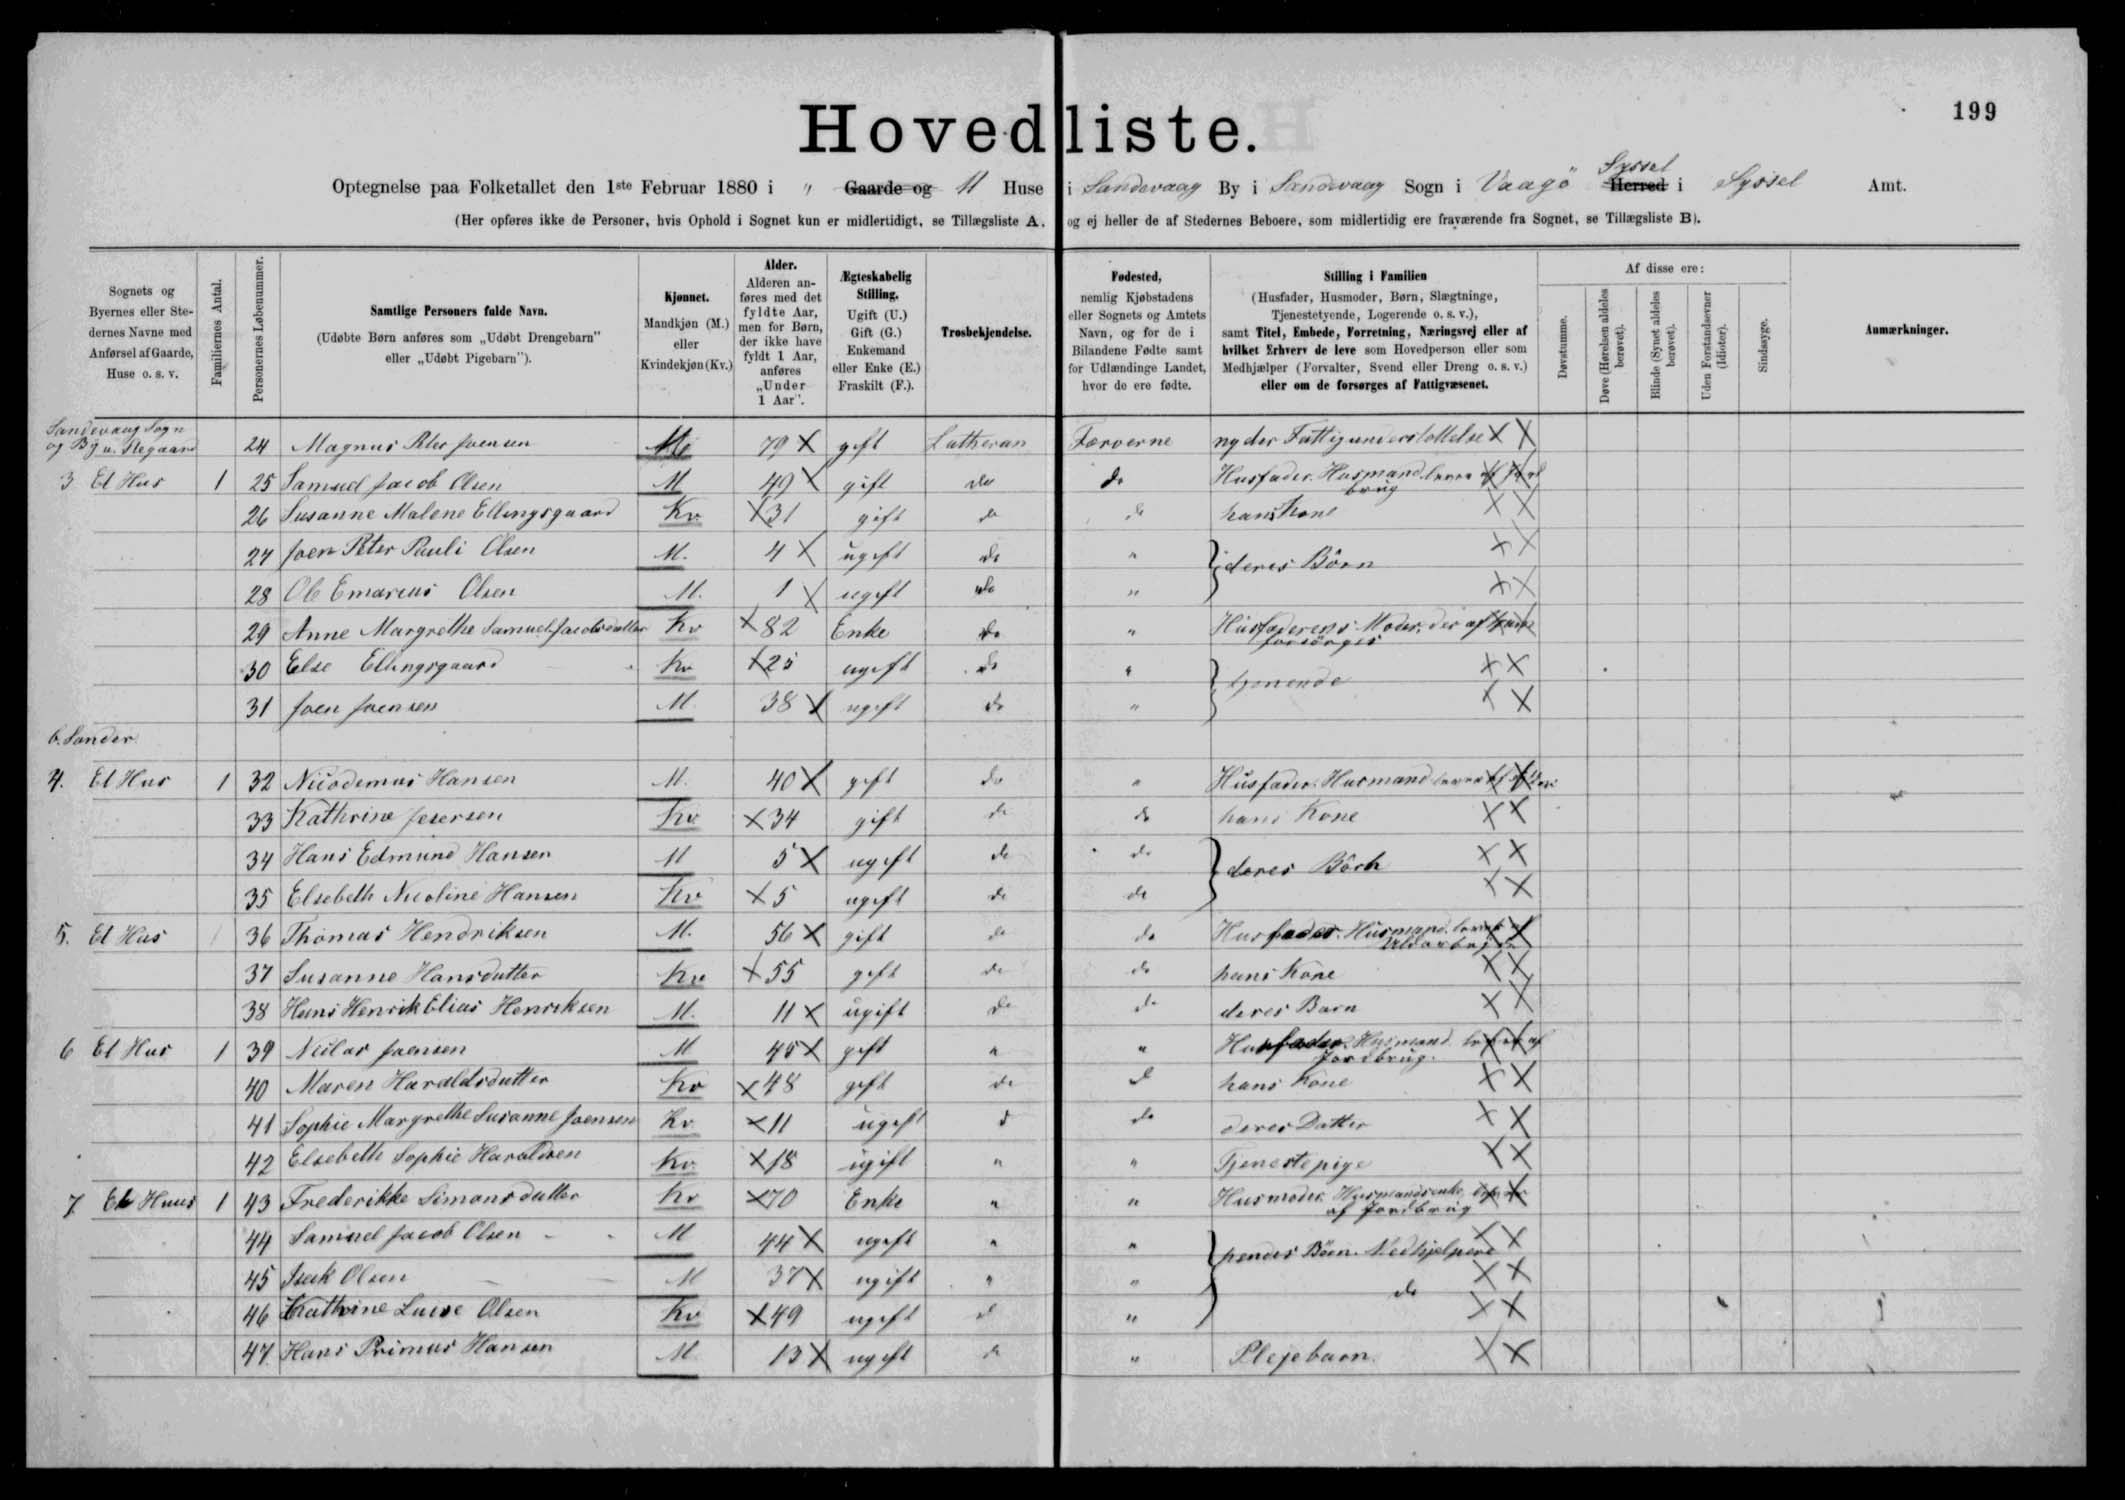 Hovedliste.
199
Optegnelse paa Folketallet den 1ste Februar 1880 i " Gaarde og 11 Huse i Sandevaag By i Sandevaag Sogn i Vaagø Herred Syssel i Syssel Amt.
(Her opføres ikke de Personer, hvis Ophold i Sognet kun er midlertidigt, se Tillægsliste A, og ej heller de af Stedernes Beboere, som midlertidig ere fraværende fra Sognet, se Tillægsliste B).
Sognets og Byernes eller Stedernes Navne med Anførsel af Gaarde, Huse o. s. v.
Familiernes Antal.
Personernes Løbenummer.
Samtlige Personers fulde Navn.
(Udøbte Børn anføres som „Udøbt Drengebarn" eller „Udøbt Pigebarn").
Kjønnet.
Mandkjøn (M.) eller Kvindekjøn (Kv.)
Alder.
Alderen anføres med det fyldte Aar, men for Børn, der ikke have fyldt 1 Aar, anføres „Under 1 Aar".
Ægteskabelig Stilling.
Ugift (U.) Gift (G.) Enkemand eller Enke (E.) Fraskilt (F.).
Trosbekjendelse.
Fødested,
nemlig Kjøbstadens eller Sognets og Amtets Navn, og for de i Bilandene Fødte samt for Udlændinge Landet, hvor de ere fødte.
Stilling i Familien
(Husfader, Husmoder, Børn, Slægtninge, Tjenestetyende, Logerende o. s. v.),
samt Titel, Embede, Forretning, Næringsvej eller af hvilket Erhverv de leve som Hovedperson eller som Medhjælper (Forvalter, Svend eller Dreng o. s. v.) eller om de forsørges af Fattigvæsenet.
Af disse ere:
Døvstumme.
Døve (Hørelsen aldeles berøvet).
Blinde (Synet aldeles berøvet).
Uden Forstandsevner (Idioter).
Sindssyge.
Anmærkninger.
Sandevaag Sogn
og By
24 Magnus Peter Joensen 79 X gift Lutheran Færøerne nyder Fattigunderstøttelse X X
3 Et Hus 1 25 Samuel Jacob Olsen M 49 X gift do do Husfader. Husmand
brug
26 Susanne Malene Ellingsgaard Kv X 31 gift do do hans Kone X X
27 Joen Peter Pauli Olsen M. 4 X ugift do " deres Børn X X
28 Ole Emarius Olsen M. 1 X ugift do " X X
29 Anne Margrethe Samuel Jacobsdatter Kv X 82 Enke do " Husfaderens Moder, der af ham
forsørges
30 Else Ellingsgaard Kv X 25 ugift do " tjenende X X
31 Joen Joensen M. 38 X ugift do " X X
b. Sander
4. Et Hus 1 32 Nicodemus Hansen M. 40 X gift do " Husfader. Husmand
33 Kathrine Jesersen Kv X 34 gift do do hans Kone X X
34 Hans Edmund Hansen M 5 X ugift do do deres Børn X X
35 Elsebeth Nicoline Hansen Kv X 5 ugift do do X X
5. Et Hus 36 Thomas Hendriksen M. 56 X gift do do Husfader. Husmand
Uldarbejde
37 Susanne Hansdatter Kv X 55 gift do do hans Kone X X
38 Hans Henrik Elias Henriksen M. 11 X ugift do do deres Barn X X
6 Et Hus 1 39 Joensen M 45 X gift " " Husfader. Husmand lever af
Jordbrug.
40 Maren Haraldsdatter Kv X 48 gift do d hans Kone X X
41 Sophie Margrethe Susanne Joensen Kv. X 11 ugift d do deres Datter X X
42 Elsebeth Sophie Haraldsen Kv. X 18 ugift " " Tjenestepige X X
7. Et Huus 1 43 Frederikke Simonsdatter Kv X 70 Enke " " Husmoder. Husmandsenke lever
af Jordbrug
44 Samuel Jacob Olsen M 44 X ugift " " hendes Børn. Medhjelpere X X
45 Isak Olsen M 37 X ugift " " X X
46 Kathrine Luise Olsen Kv X 49 ugift d " do X X
47 Hans Primus Hansen M. 13 X ugift d " Plejebarn. X X